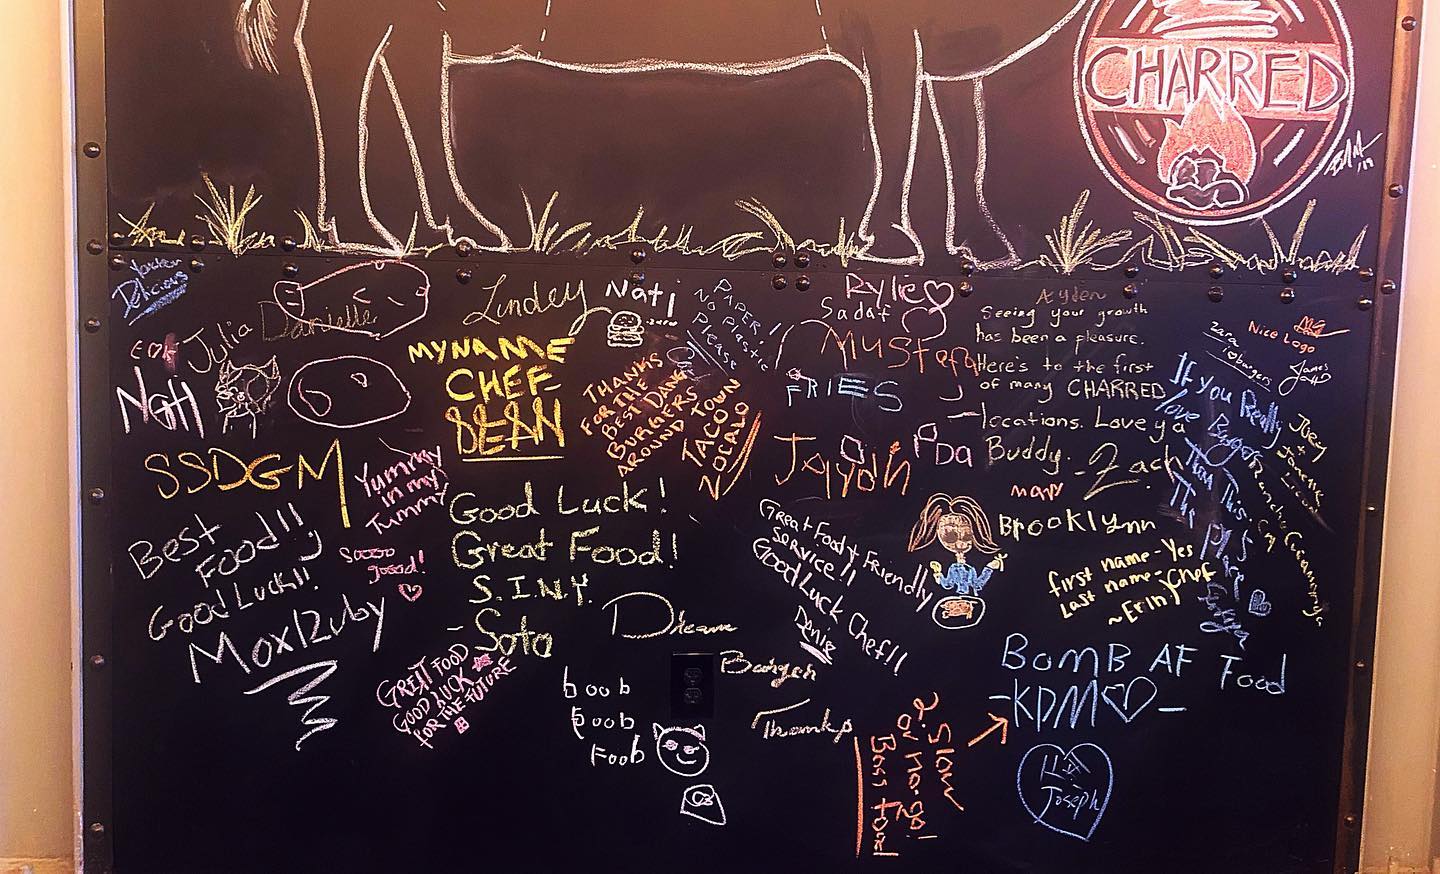 CHARRED
'19
Delicious
Julia
Danielle
Lindey
Nati
PAPER!
NO PLASTIC
Please
Rylie
Sadaf
Mustafa
FRIES
Ayden
Seeing your growth
has been a pleasure.
Here's to the first
of many CHARRED
locations. Love ya
Buddy. - Zach
zara
Nice Logo
James
If you Really
love
Then This
The
Place
Joey
MY NAME
CHEF
SEAN
THANKS
FOR THE
BEST DANG
BURGERS
AROUND
TOWN
TACO
ZOCALO
Jaydn
SSDGM
Yummy
in my
Tummy
Best
Food!!
Good Luck!!
Sooooo
goood!
Good Luck!
Great Food!
S.I.N.Y.
- Soto
Great Food & Friendly
SERVICE!!
Good Luck Chef!!
Denise
mary
Brooklynn
first name - Yes
Last name - Chef
~Erin
Dream
GREAT FOOD
GOOD LUCK
FOR THE FUTURE
boob
boob
Foob
Thanks
2. Slow
or no-go!
Boss Food
BomB AF Food
-KDM♡-
Joseph